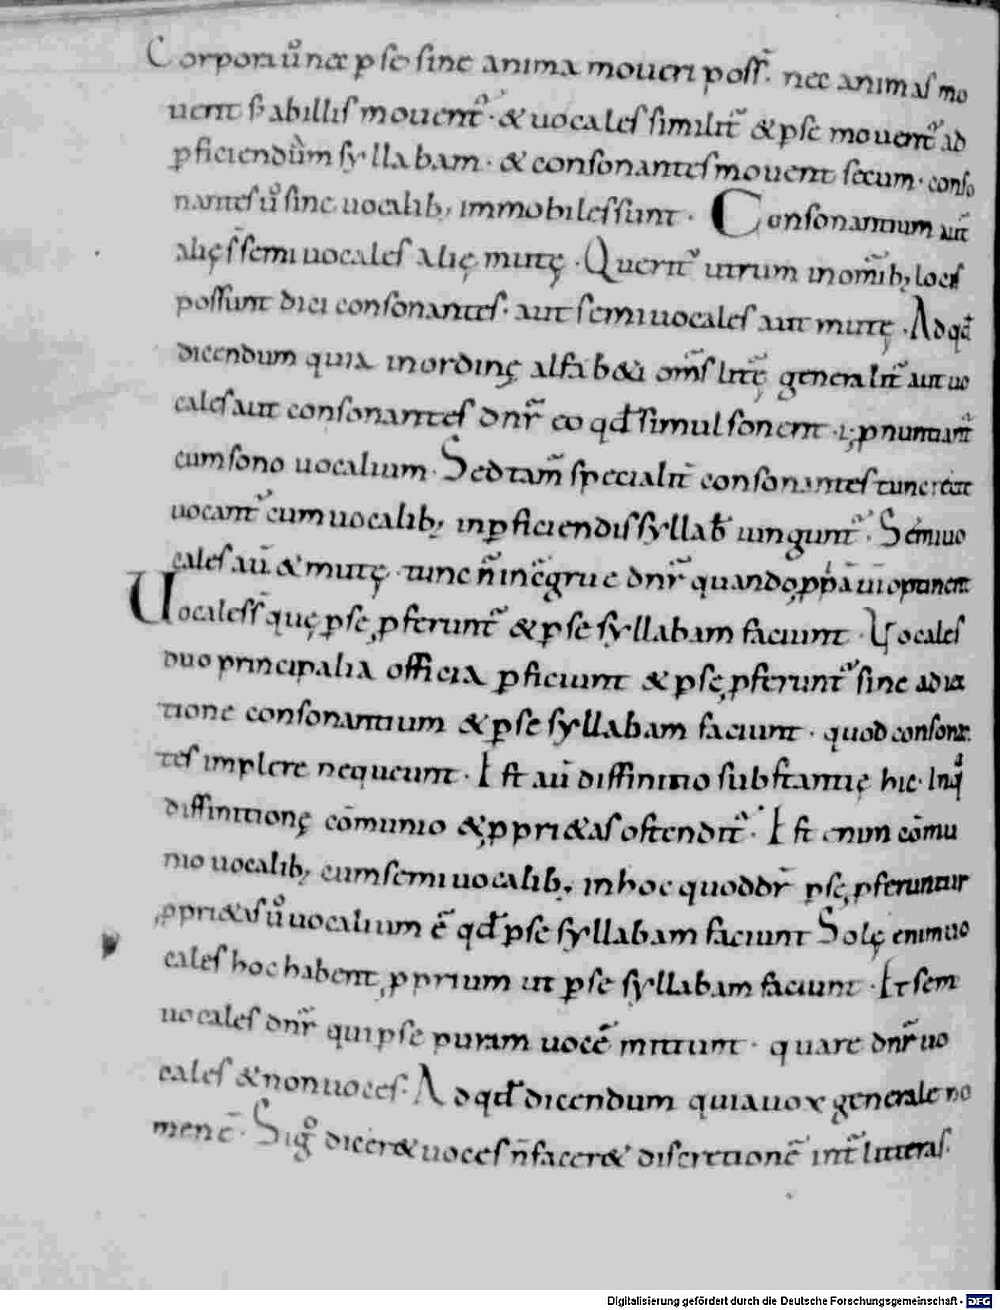 Corpora ū̊ nec ꝑ se sine anima moueri poss̄. nec animas mo
uent s; ab illis mouent᷑. & uocales similit̄ & ꝑ se mouent᷑ ad
ꝑficiendum syllabam. & consonantes mouent secum. conso
nantes ū̊ sine uocalib; immobiles sunt. Consonantium aut̄
alię s̄ semiuocales alię mutę. Querit᷑ utrum in om̄ib; locis
possunt dici consonantes. aut semiuocales aut mutę. Ad qđ
dicendum quia in ordinę alfab&i om̄s litt̄ę generalit̄ aut uo
cales aut consonantes dn̄r eo qđ simul sonent .i. ꝓnuntiant᷑
cum sono uocalium. Sed tam̄ specialit̄ consonantes tunc
uocant᷑ cum uocalib; in ꝑficiendis syllab̄ iungunt᷑. Semiuo
cales aū & mutę. tunc n̄ incgrue dn̄r quando ꝓpͥā
Uocales s̄ quę ꝑ se ꝓferunt᷑ & ꝑ se syllabam faciunt. Uocales
duo principalia officia ꝑficiunt & ꝑ se ꝓferunt᷑ sine adiec
tione consonantium & ꝑ se syllabam faciunt. quod consonan
tes implere nequeunt. Est aū diffinitio substantię hic. In q̊
diffinitionę cōmunio & ꝓpri&as ostendit᷑. Est enim cōmu
nio uocalib; cum semiuocalib; in hoc quod dr̄ ꝑ se ꝓferuntur
ꝓpri&as ū̊ uocalium ē qđ ꝑ se syllabam faciunt Solę enim uo
cales hoc habent ꝓprium ut ꝑ se syllabam faciunt. Et sem
uocales dn̄r qui ꝑ se puram uocē mittunt. quare dn̄r uo
cales & non uoces. Ad qđ dicendum quia uox generale no
men ē. Si g̊ dicer& uoces n̄ facer& discretionē int̄ litteras.